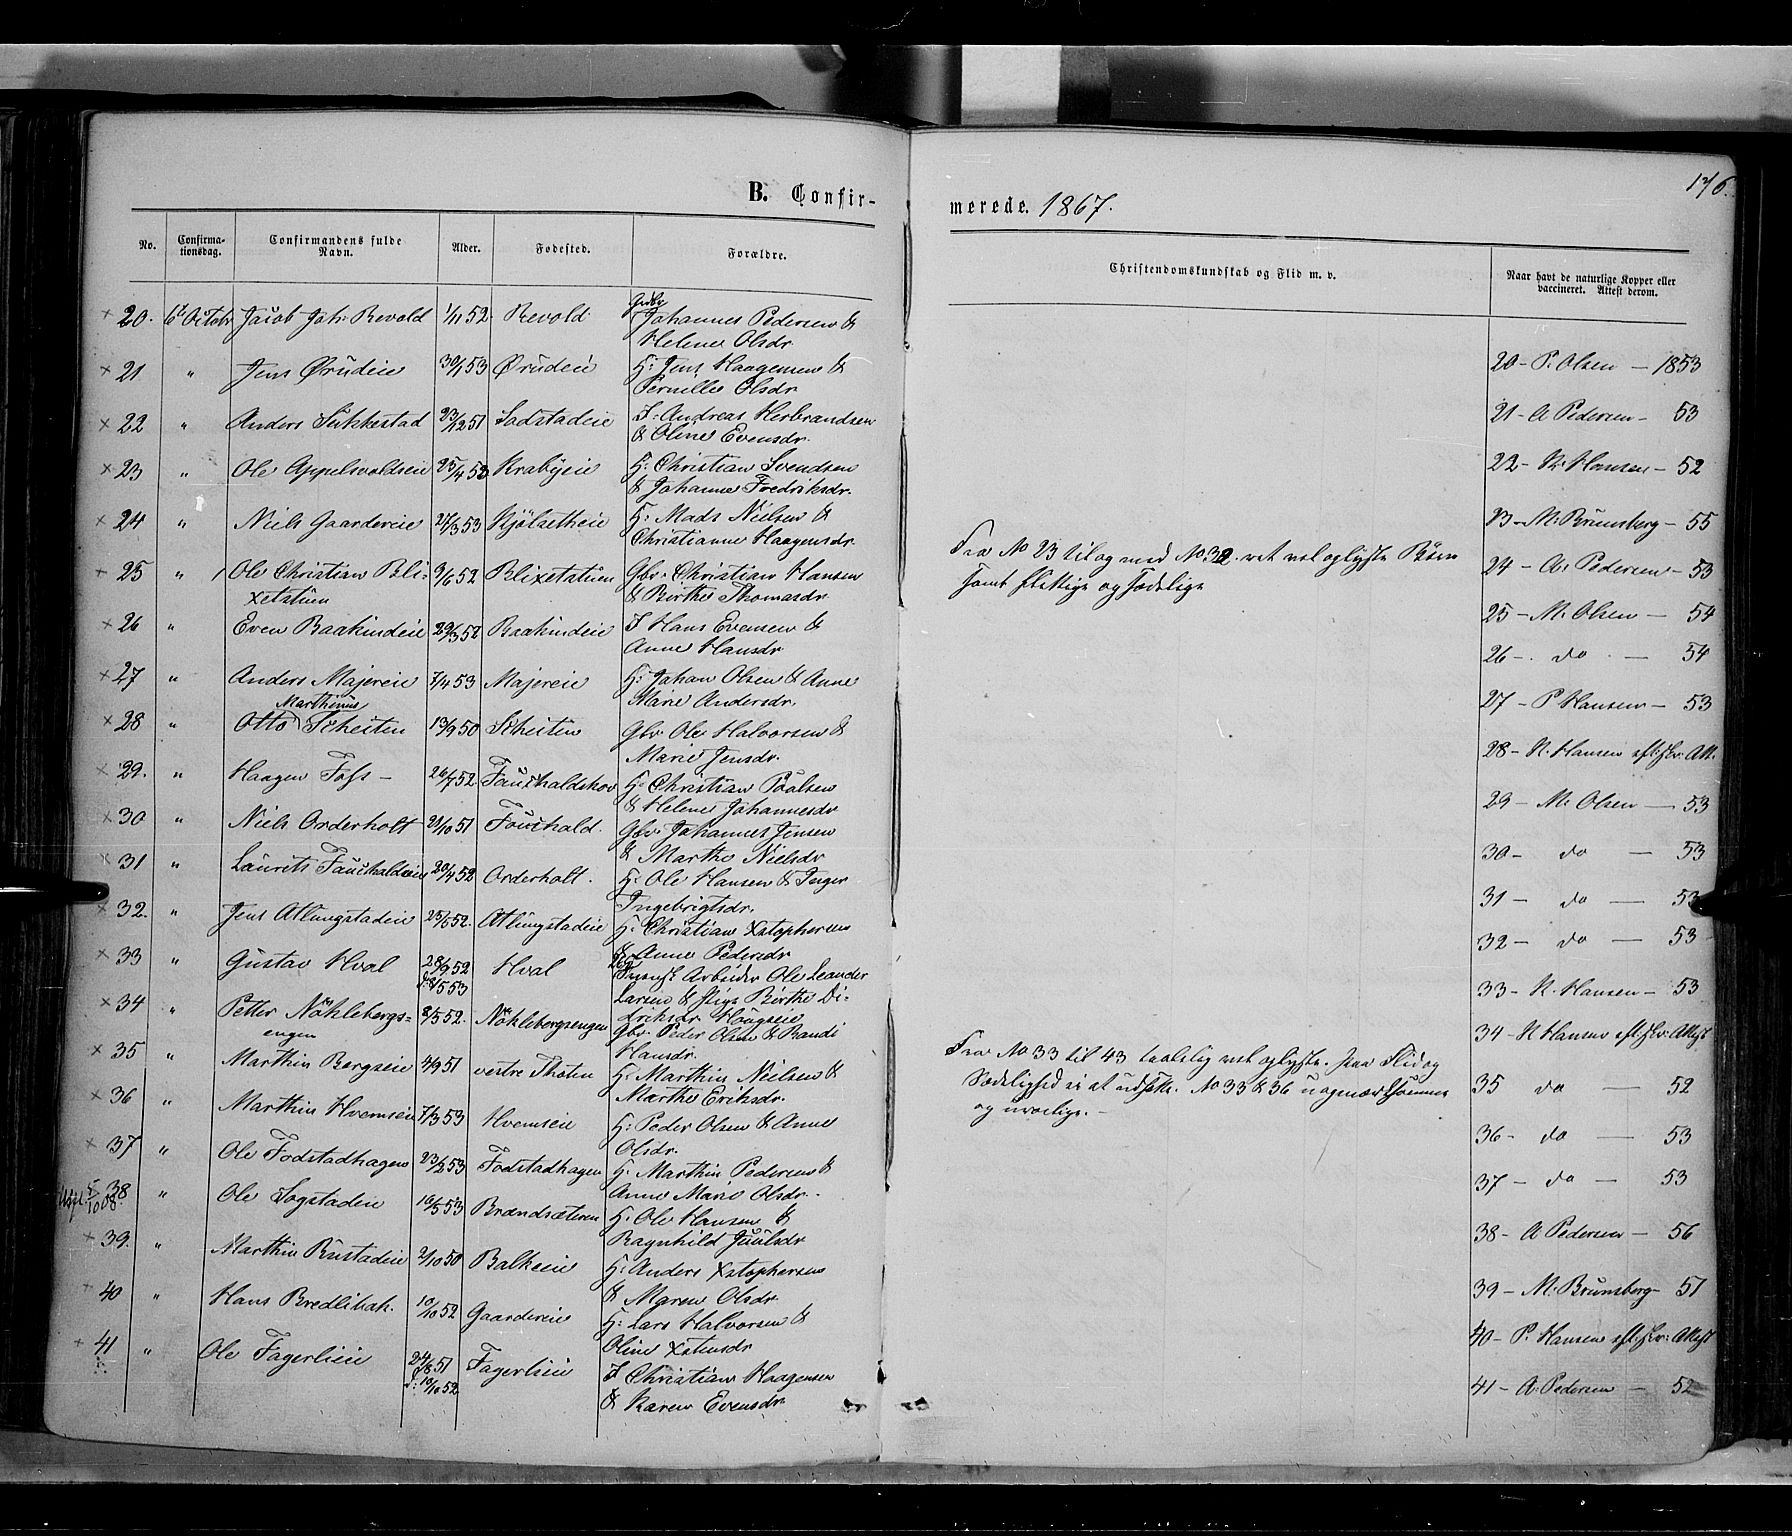 176.
B. Confir-
merede. 1867.
No. Confirma-tionsdag. Confirmandens fulde Navn. Alder. Fødested. Forældre. Christendomskundskab og Flid m. v. Naar havt de naturlige Kopper eller vaccineret. Attest derom.
× 20. 6t October Jacob Joh: Revold 1/11 52. Revold Gbr Johannes Pedersen &
Helene Olsdr
× 21 " Jens Ørudeie 30/1 53 Ørudeie H: Jens Haagensen &
Pernille Olsdr
× 22 " Anders Sukkestad 23/12 51 Sodstadeie I: Andreas Herbrandsen
& Oline Evensdr.
× 23 " Ole Appelsvoldseie 25/4 53 Krabyeie H: Christian Svendsen
& Johanne Fredriksdr.
× 24 " Niels Gaardereie 27/3 53 Kjølsetheie H: Mads Nielsen &
Christianne Haagensdr.
× 25 " Ole Christian Bli- 9/6 52 Blixstatuen Gbr. Christian Hansen
xetstuen & Birthe Thomasdr
× 26 " Even Baakindeie 29/3 52 Baakindeie I Hans Evensen &
Anne Hansdr
× 27 " Anders Majereie 7/4 53 Majereie H: Johan Olsen & Anne
Marie Andersdr.
Marthinus
× 28 " Otto Scheiten 13/9 50 Scheiten Gbr Ole Halvorsen &
Marie Jensdr.
× 29. " Haagen Foss – 26/7 52. Fauchaldskov H: Christian Paalsen
& Helene Johannesdr
× 30 " Niels Orderholt 21/10 51 Fauchald. Gbr Johannes Jensen
& Marthe Nielsdr
× 31 " Laurits Fauchaldeie 20/4 52 Orderholt. H: Ole Hansen & Inger
Ingebrigtsdr.
× 32. " Jens Atlungstadeie 25/5 52. Atlungstadeie H: Christian Xstophersen
& Anne Pedersdr
× 33 " Gustav Hval 28/9 52 Hval Svensk Arbeider Ole Leander
Larsen & Pige Birthe Di-
driksdr Haugseie
× 34 " Petter Nøklebergs- 8/5 52. Nøklebergsengen Gbr. Peder Olsen & Randi
engen Hansdr.
× 35 " Marthin Bergseie 4/9 51 vestre Thoten H: Marthin Nielsen &
Marthe Eriksdr.
× 36 " Marthin Hvemseie 7/3 53 Hvemseie H: Peder Olsen & Anne
Olsdr.
× 37 " Ole Fodstadhagen 23/2 53 Fodstadhagen H. Marthin Pedersen &
Anne Marie Olsdr.
5/10 08. 38 " Ole Sogstadeie 16/5 53 Brændsæteren H. Ole Hansen &
Ragnhild Juulsdr
× 39. " Marthin Rustadeie 2/10 50 Balkeeie H: Anders Xstophersen
& Maren Olsdr.
× 40 " Hans Bredlibak. 10/10 52 Gaardereie H: Lars Halvorsen &
Oline Xstensdr
× 41 " Ole Fagerlieie 24/8 51 Fagerlieie I Christian Haagensen
d: 10/10 52 & Karen Evensdr
Fra No 23 til og med No 32. ret vel oplyste Børn
samt flittige og sædelige
Fra No 33 til 43 taalelig vel oplyste. paa Flid og
Sædelighed ei at udsætte. No 33 & 36 uopmærksomme
og urolige. –
20 – P. Olsen – 1853
21 – A Pedersen – 53
22 – K. Hansen – 52
23 – M. Brunsberg – 55
24 – A. Pedersen – 53
25 – M. Olsen – 54
26 – do – 54
27 – P Hansen – 53
28 – K. Hansen eft. Att.
29 – M. Olsen – 53
30 – do – 53
31 – do – 53
32 – do – 53
33 – K. Hansen – 53
34 – K Hansen eft. Attest
35 do – 52
36 – do – 53
37 – do – 53
38 – A Pedersen – 56
39 – M. Brunsberg – 51
40 – P. Hansen eft. Attest
41 – A. Pedersen – 52